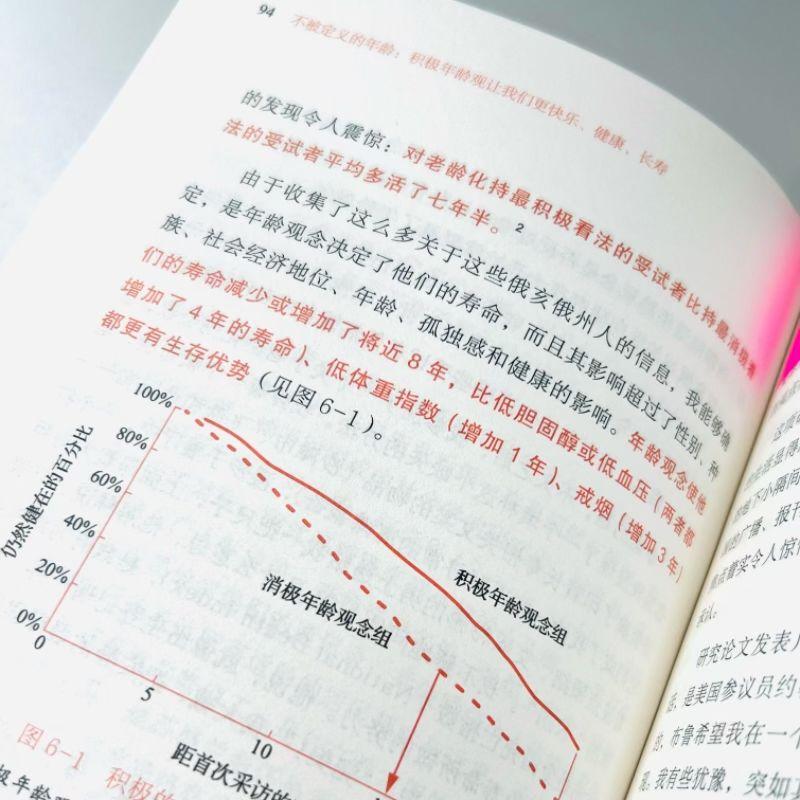 94 不被定义的年龄：积极年龄观让我们更快乐、健康、长寿
的发现令人震惊：对老龄化持最积极看法的受试者比持最消极看
法的受试者平均多活了七年半。2
由于收集了这么多关于这些俄亥俄州人的信息，我能够确
定，是年龄观念决定了他们的寿命，而且其影响超过了性别、种
族、社会经济地位、年龄、孤独感和健康的影响。年龄观念使他
们的寿命减少或增加了将近8年，比低胆固醇或低血压（两者都
增加了4年的寿命）、低体重指数（增加1年）、戒烟（增加3年）
都更有生存优势（见图6-1）。
仍然健在的百分比
100%
80%
60%
40%
20%
0%
0
5
10
积极年龄观念组
消极年龄观念组
距首次采访的
图6-1 积极的
极年龄观
这项
电下小隔间
的广播、报刊
着实令人惊
我认。
研究论文发表
话，是美国参议员约
的，布鲁希望我在一个
现。我有些犹豫，突如